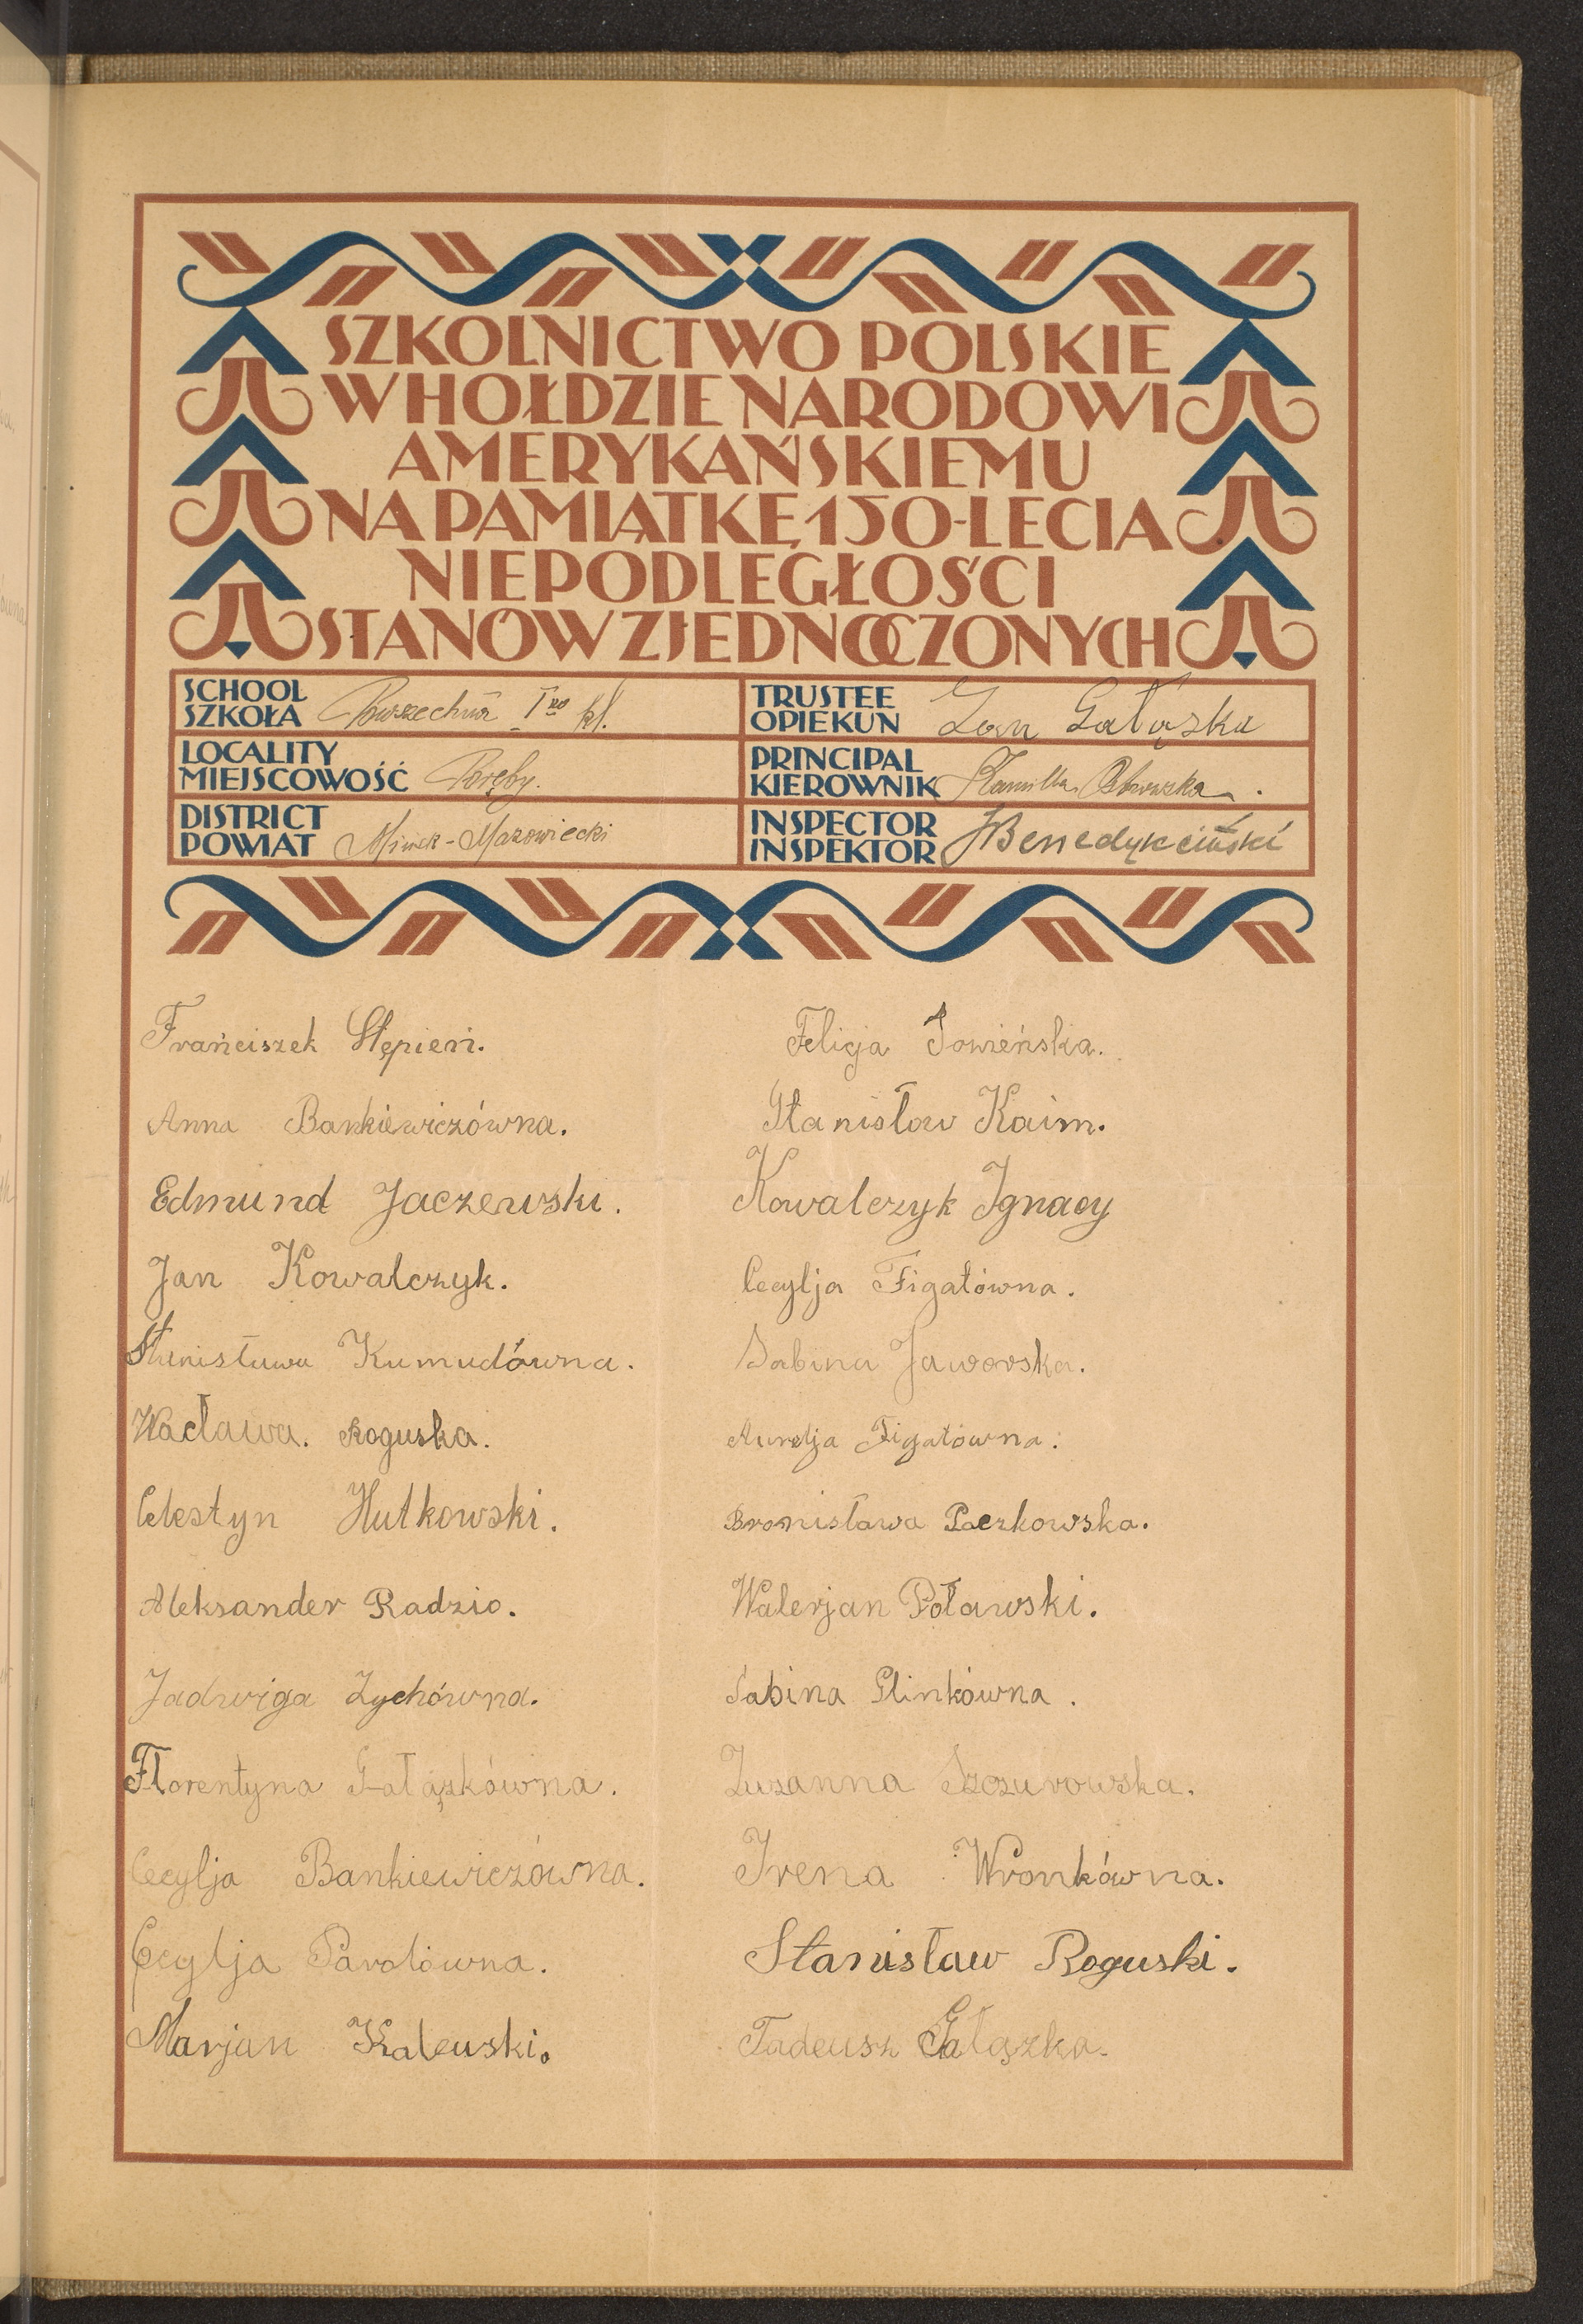 SZKOLNICTWO POLSKIE
W HOŁDZIE NARODOWI
AMERYKAŃSKIEMU
NA PAMIĄTKĘ 150-LECIA
NIEPODLEGŁOŚCI
STANÓW ZJEDNOCZONYCH
SCHOOL
SZKOŁA Powszechna I kl.
TRUSTEE
OPIEKUN Jan Gałązka
LOCALITY
MIEJSCOWOŚĆ Poręby.
PRINCIPAL
KIEROWNIK
DISTRICT
POWIAT Mińsk-Mazowiecki
INSPECTOR
INSPEKTOR Benedykciński
Frańciszek Stępień.
Anna Bankiewiczówna.
Edmund Jaczewski.
Jan Kowalczyk.
Stanisława Kumudówna.
Wacława. Roguska.
Celestyn Hutkowski.
Aleksander Radzio.
Jadwiga Zychówna.
Florentyna Gałązkówna.
Cecylja Bankiewiczówna.
Cecylja
Marjan Kalewski.
Felicja
Stanisław Kaim.
Kowalczyk Ignacy
Cecylja Figatówna.
Sabina Jaworska.
Aurelja Figatówna.
Bronisława Paczkowska.
Walerjan Poławski.
Sabina Plinkówna.
Zuzanna Szczurowska.
Irena Wronkówna.
Stanisław Roguski.
Tadeusz Gałązka.